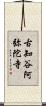 古知谷阿
弥陀寺